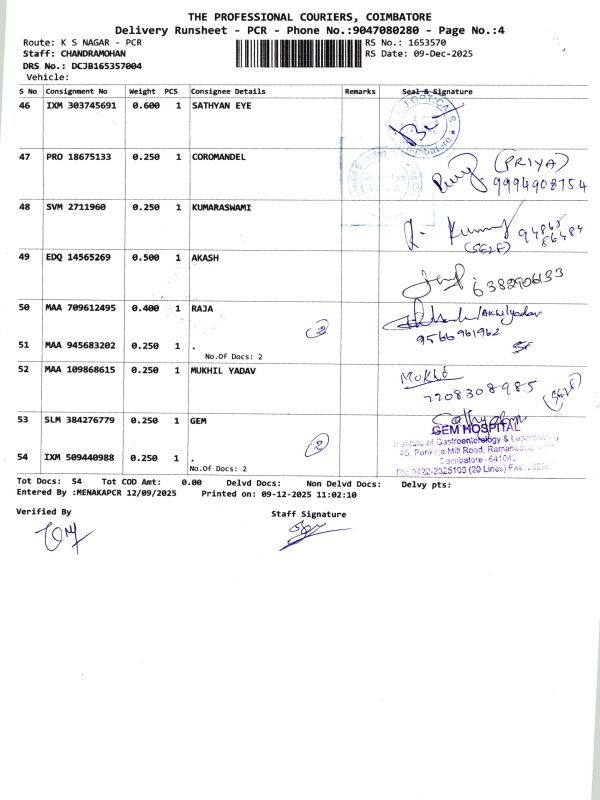 THE PROFESSIONAL COURIERS, COIMBATORE
Delivery Runsheet - PCR - Phone No.:9047080280 - Page No.:4
Route: K S NAGAR - PCR RS No.: 1653570
Staff: CHANDRAMOHAN RS Date: 09-Dec-2025
DRS No.: DCJB165357004
Vehicle:
S No Consignment No Weight PCS Consignee Details Remarks Seal & Signature
46 IXM 303745691 0.600 1 SATHYAN EYE
OPTICALS
Coimbatore
47 PRO 18675133 0.250 1 COROMANDEL (PRIYA)
9994908754
48 SVM 2711960 0.250 1 KUMARASWAMI
(SELF)
49 EDQ 14565269 0.500 1 AKASH
6382906133
50 MAA 709612495 0.400 1 RAJA
2
9566961962
51 MAA 945683202 0.250 1 .
No.Of Docs: 2
52 MAA 109868615 0.250 1 MUKHIL YADAV
7208308985
(Self)
53 SLM 384276779 0.250 1 GEM
GEM HOSPITAL
2
Institute of Gastroenterology &
45, Pankaja Mill Road,
54 IXM 509440988 0.250 1 .
Coimbatore - 641045
No.Of Docs: 2
Ph: 0422-2325100 (20 Lines) Fax:
Tot Docs: 54 Tot COD Amt: 0.00 Delvd Docs: Non Delvd Docs: Delvy pts:
Entered By :MENAKAPCR 12/09/2025 Printed on: 09-12-2025 11:02:10
Verified By Staff Signature